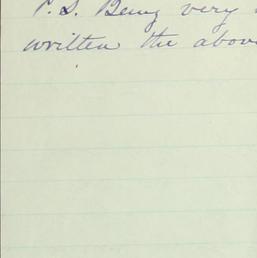 P.S. Being very
written the above